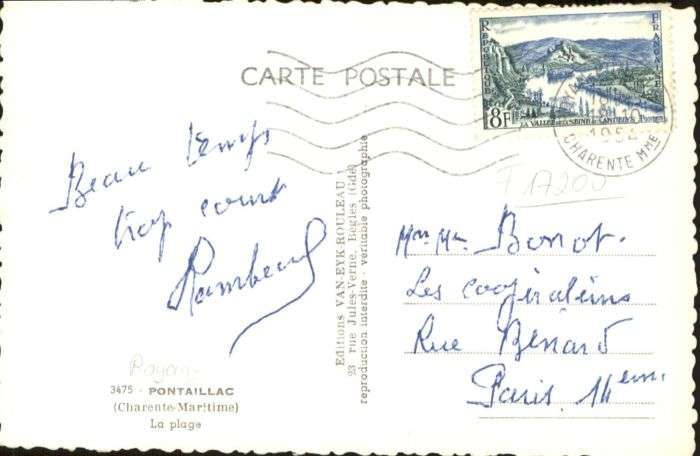 CARTE POSTALE
REPUBLIQUE FRANÇAISE
8F
LA VALLEE DE LA SEINE AUX ANDELYS
1954
CHARENTE MME
F 17200
Beau temps
trop court
Rambeau
Mr Me Bonot.
Les coopérateurs
Rue Bénard
Paris 14em
Editions VAN-EYK-ROULEAU
23 rue Jules-Verne, Bègles (Gde)
reproduction interdite - véritable photographie
Royan
3475 - PONTAILLAC
(Charente-Maritime)
La plage